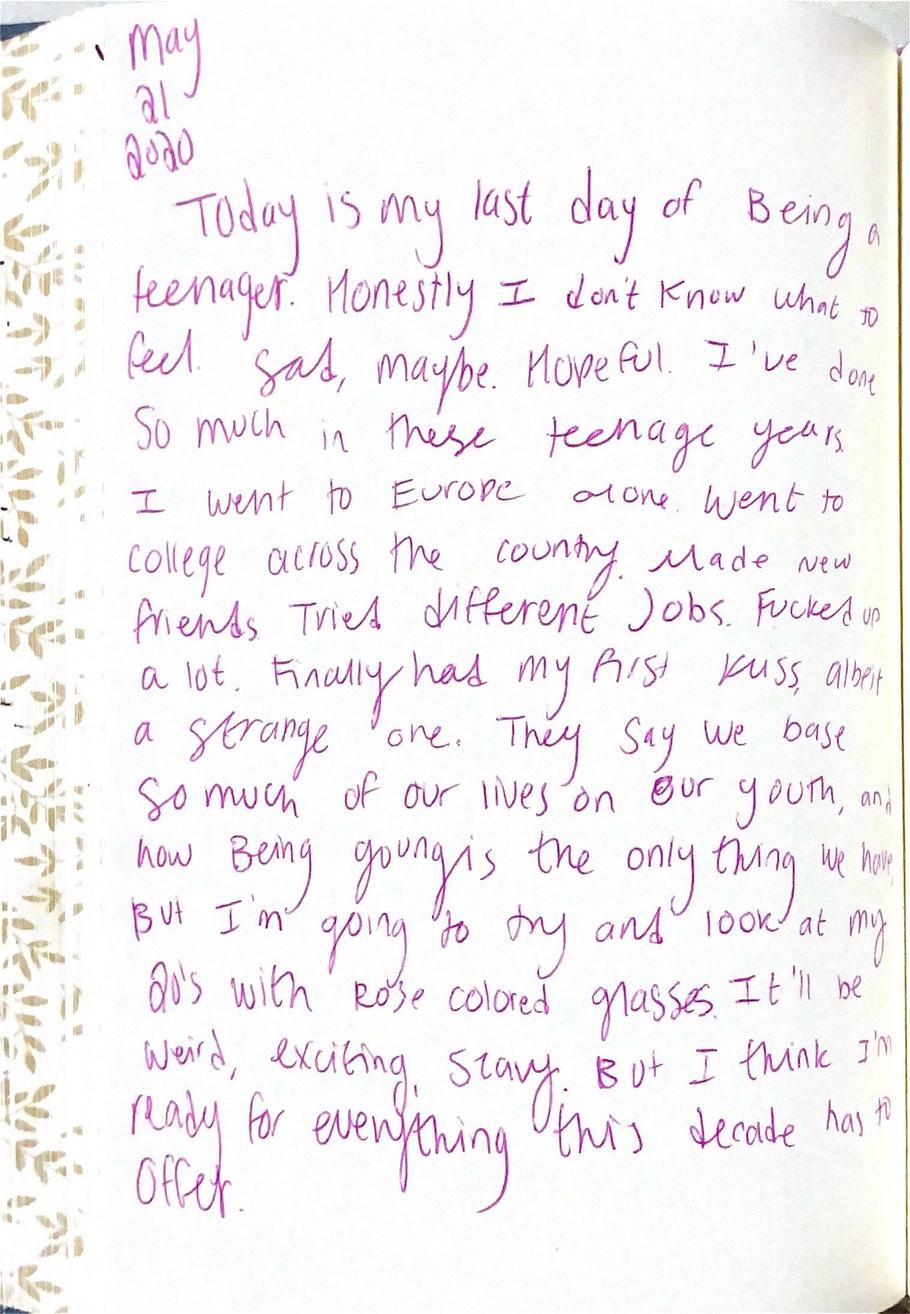 May
21
2020
Today is my last day of Being a
teenager. Honestly I don't know what to
feel. Sad, maybe. Hopeful. I've done
So much in these teenage years.
I went to Europe alone. Went to
college across the country. Made new
friends. Tried different Jobs. Fucked up
a lot. Finally had my first kiss, albeit
a strange one. They say we base
so much of our lives on our youth, and
how Being young is the only thing we have,
But I'm going to try and look at my
20's with Rose colored glasses. It'll be
weird, exciting, scary. But I think I'm
ready for everything this decade has to
offer.